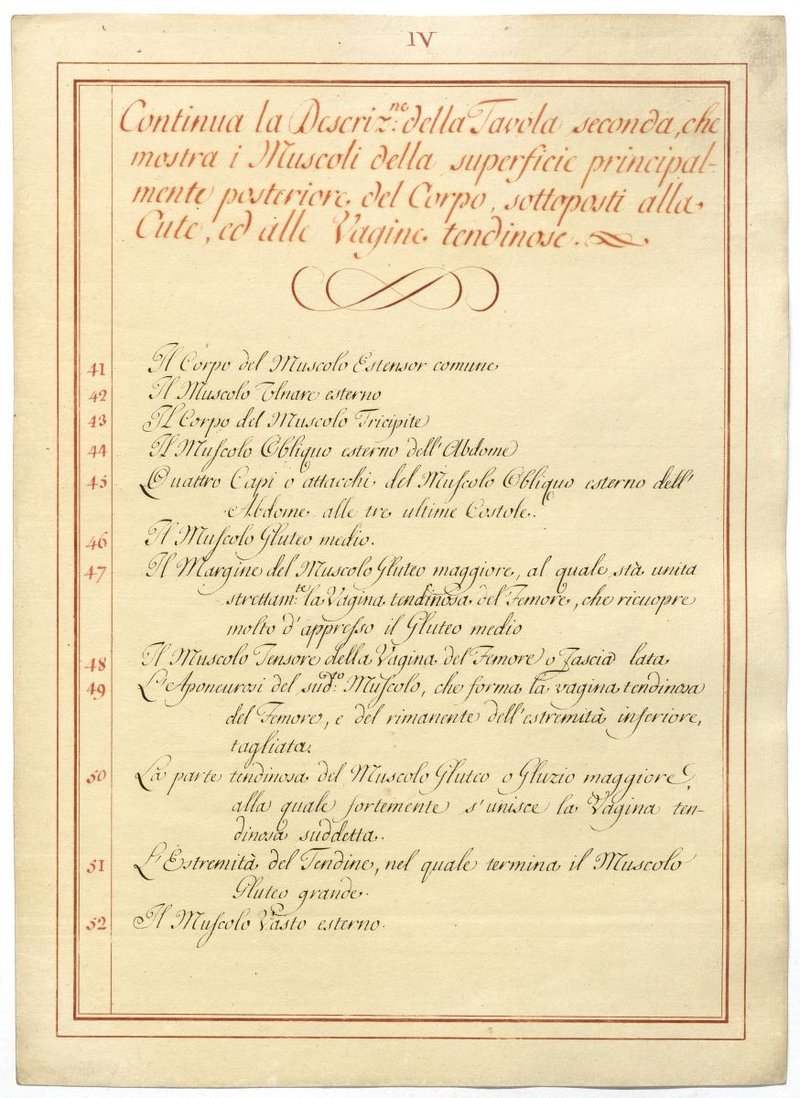 IV
Continua la Descriz.ne della Tavola seconda, che
mostra i Muscoli della superficie principal-
mente posteriore del Corpo, sottoposti alla
Cute, ed alle Vagine tendinose.
41 Il Corpo del Muscolo Estensor comune
42 Il Muscolo Ulnare esterno
43 Il Corpo del Muscolo Tricipite
44 Il Muſcolo Obliquo esterno dell'Abdome
45 Quattro Capi o attacchi del Muſcolo Obliquo esterno dell'
Abdome alle tre ultime Costole.
46 Il Muſcolo Gluteo medio.
47 Il Margine del Muscolo Gluteo maggiore, al quale stà unita
strettam.te la Vagina tendinosa del Femore, che ricuopre
molto d'appresso il Gluteo medio
48 Il Muscolo Tensore della Vagina del Femore o Fascia lata
49 L'Aponeurosi del sud.to Muſcolo, che forma la vagina tendinosa
del Femore, e del rimanente dell'estremità inferiore,
tagliata.
50 La parte tendinosa del Muscolo Gluteo o Gluzio maggiore,
alla quale fortemente s'unisce la Vagina ten-
dinosa suddetta.
51 L'Estremità del Tendine, nel quale termina il Muscolo
Gluteo grande.
52 Il Muſcolo Vasto esterno.